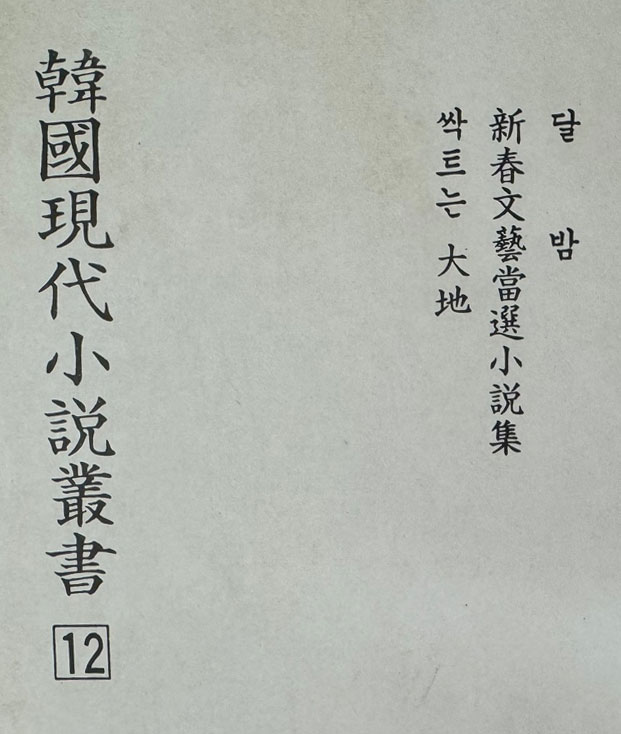 달밤
新春文藝當選小説集
싹트는 大地
韓國現代小説叢書
12